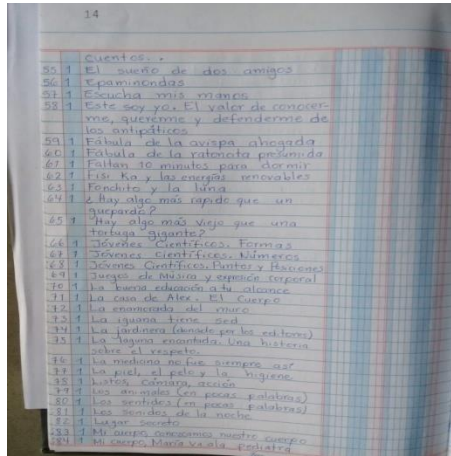 14
Cuentos...
55 1 El sueño de dos amigos
56 1 Epaminondas
57 1 Escucha mis manos
58 1 Este soy yo. El valor de conocer-
me, quererme y defenderme de
los antipáticos
59 1 Fábula de la avispa ahogada
60 1 Fabula de la ratoncita presumida
61 1 Faltan 10 minutos para dormir
62 1 Fisi Ka y las energías renovables
63 1 Fonchito y la luna
64 1 ¿Hay algo más rápido que un
guepardo?
65 1 Hay algo más viejo que una
tortuga gigante?
66 1 Jóvenes Científicos. Formas
67 1 Jóvenes Científicos. Números
68 1 Jóvenes Científicos. Puntos y
69 1 Juegos de Música y expresión corporal
70 1 La buena educación a tu alcance
71 1 La casa de Alex. El Cuerpo
72 1 La enamorada del muro
73 1 La iguana tiene sed
74 1 La jardinera (donado por los editores)
75 1 La laguna encantada. Una historia
sobre el respeto.
76 1 La medicina no fue siempre así
77 1 La piel, el pelo y la higiene
78 1 Listos, cámara, acción
79 1 Los animales (en pocas palabras)
80 1 Los sentidos (en pocas palabras)
81 1 Los sonidos de la noche
82 1 Lugar secreto
83 1 Mi cuerpo, conozcamos nuestro cuerpo
84 1 Mi cuerpo, María va al pediatra